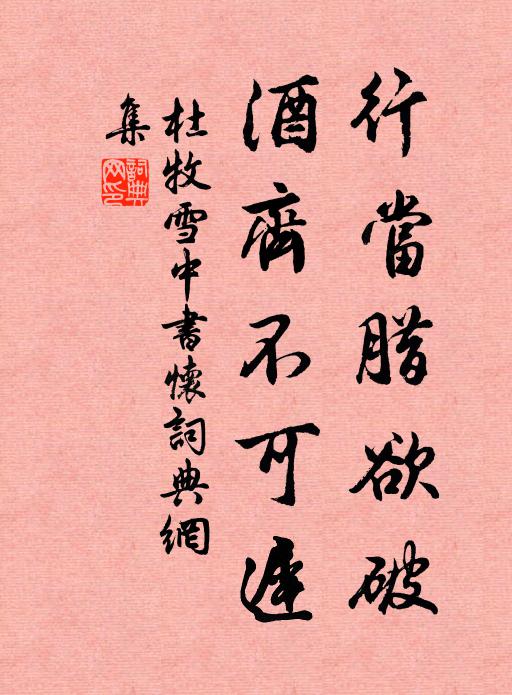 行當腊欲破
酒齊不可遲
杜牧雪中書懷詞典網
集
詞典網印